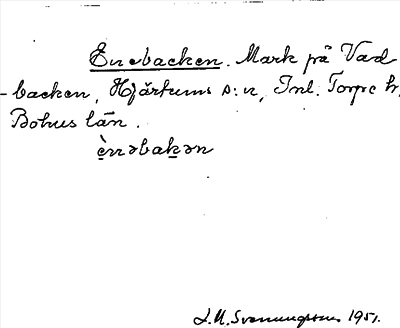 Enebacken. Mark på Vad
-backen, Hjärtums s:n, Inl. Torpe h.
Bohus län.
ènəbakən
S.M. Svenungsson 1951.